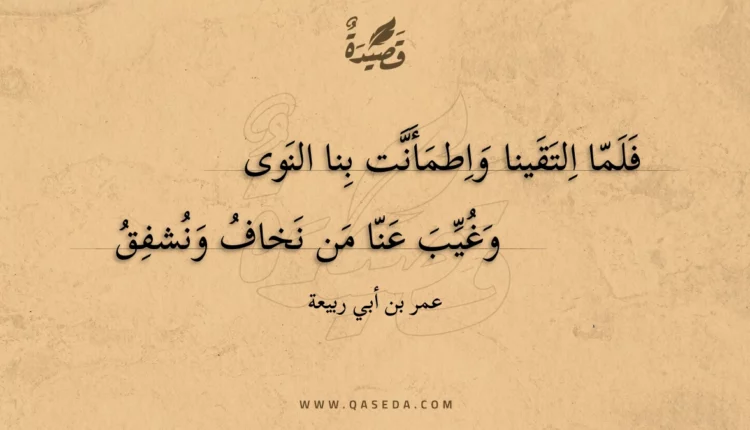 قَصِيْدَةٌ
فَلَمّا اِلتَقَينا وَاِطمَأَنَّت بِنا النَوى
وَغُيِّبَ عَنّا مَن نَخافُ وَنُشفِقُ
عمر بن أبي ربيعة
WWW.QASEDA.COM